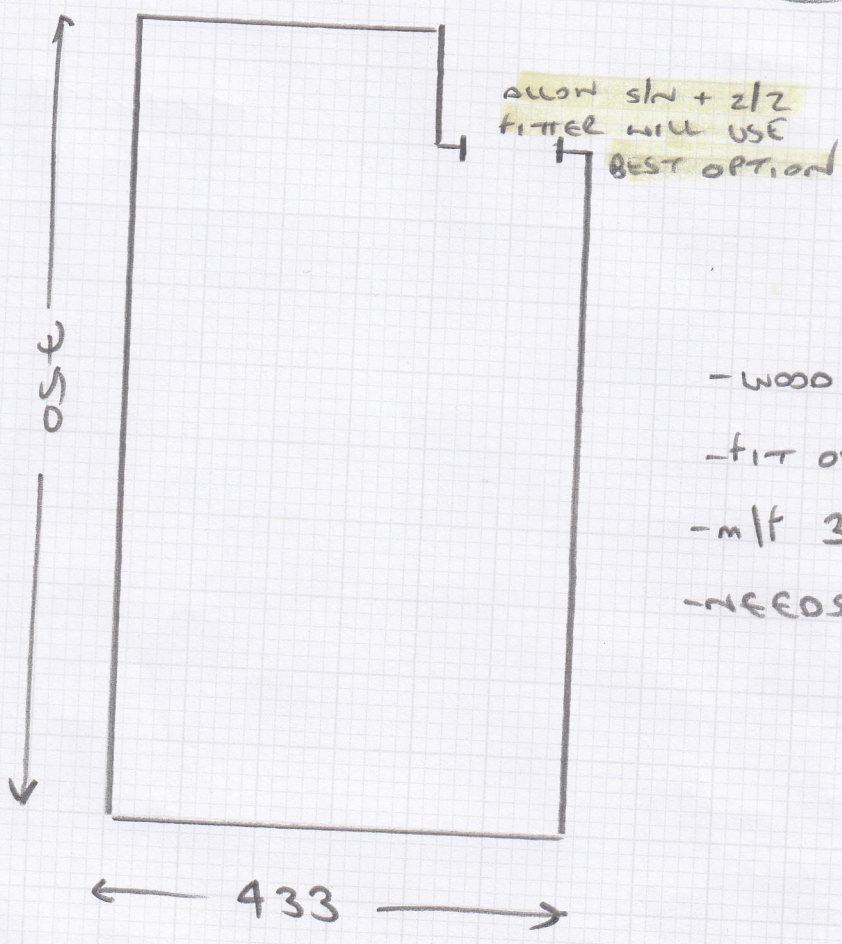 ALLOW S/N + Z/Z
FITTER WILL USE
BEST OPTION
750
-WOOD
-FIT
-m/f 3
-NEEDS
433